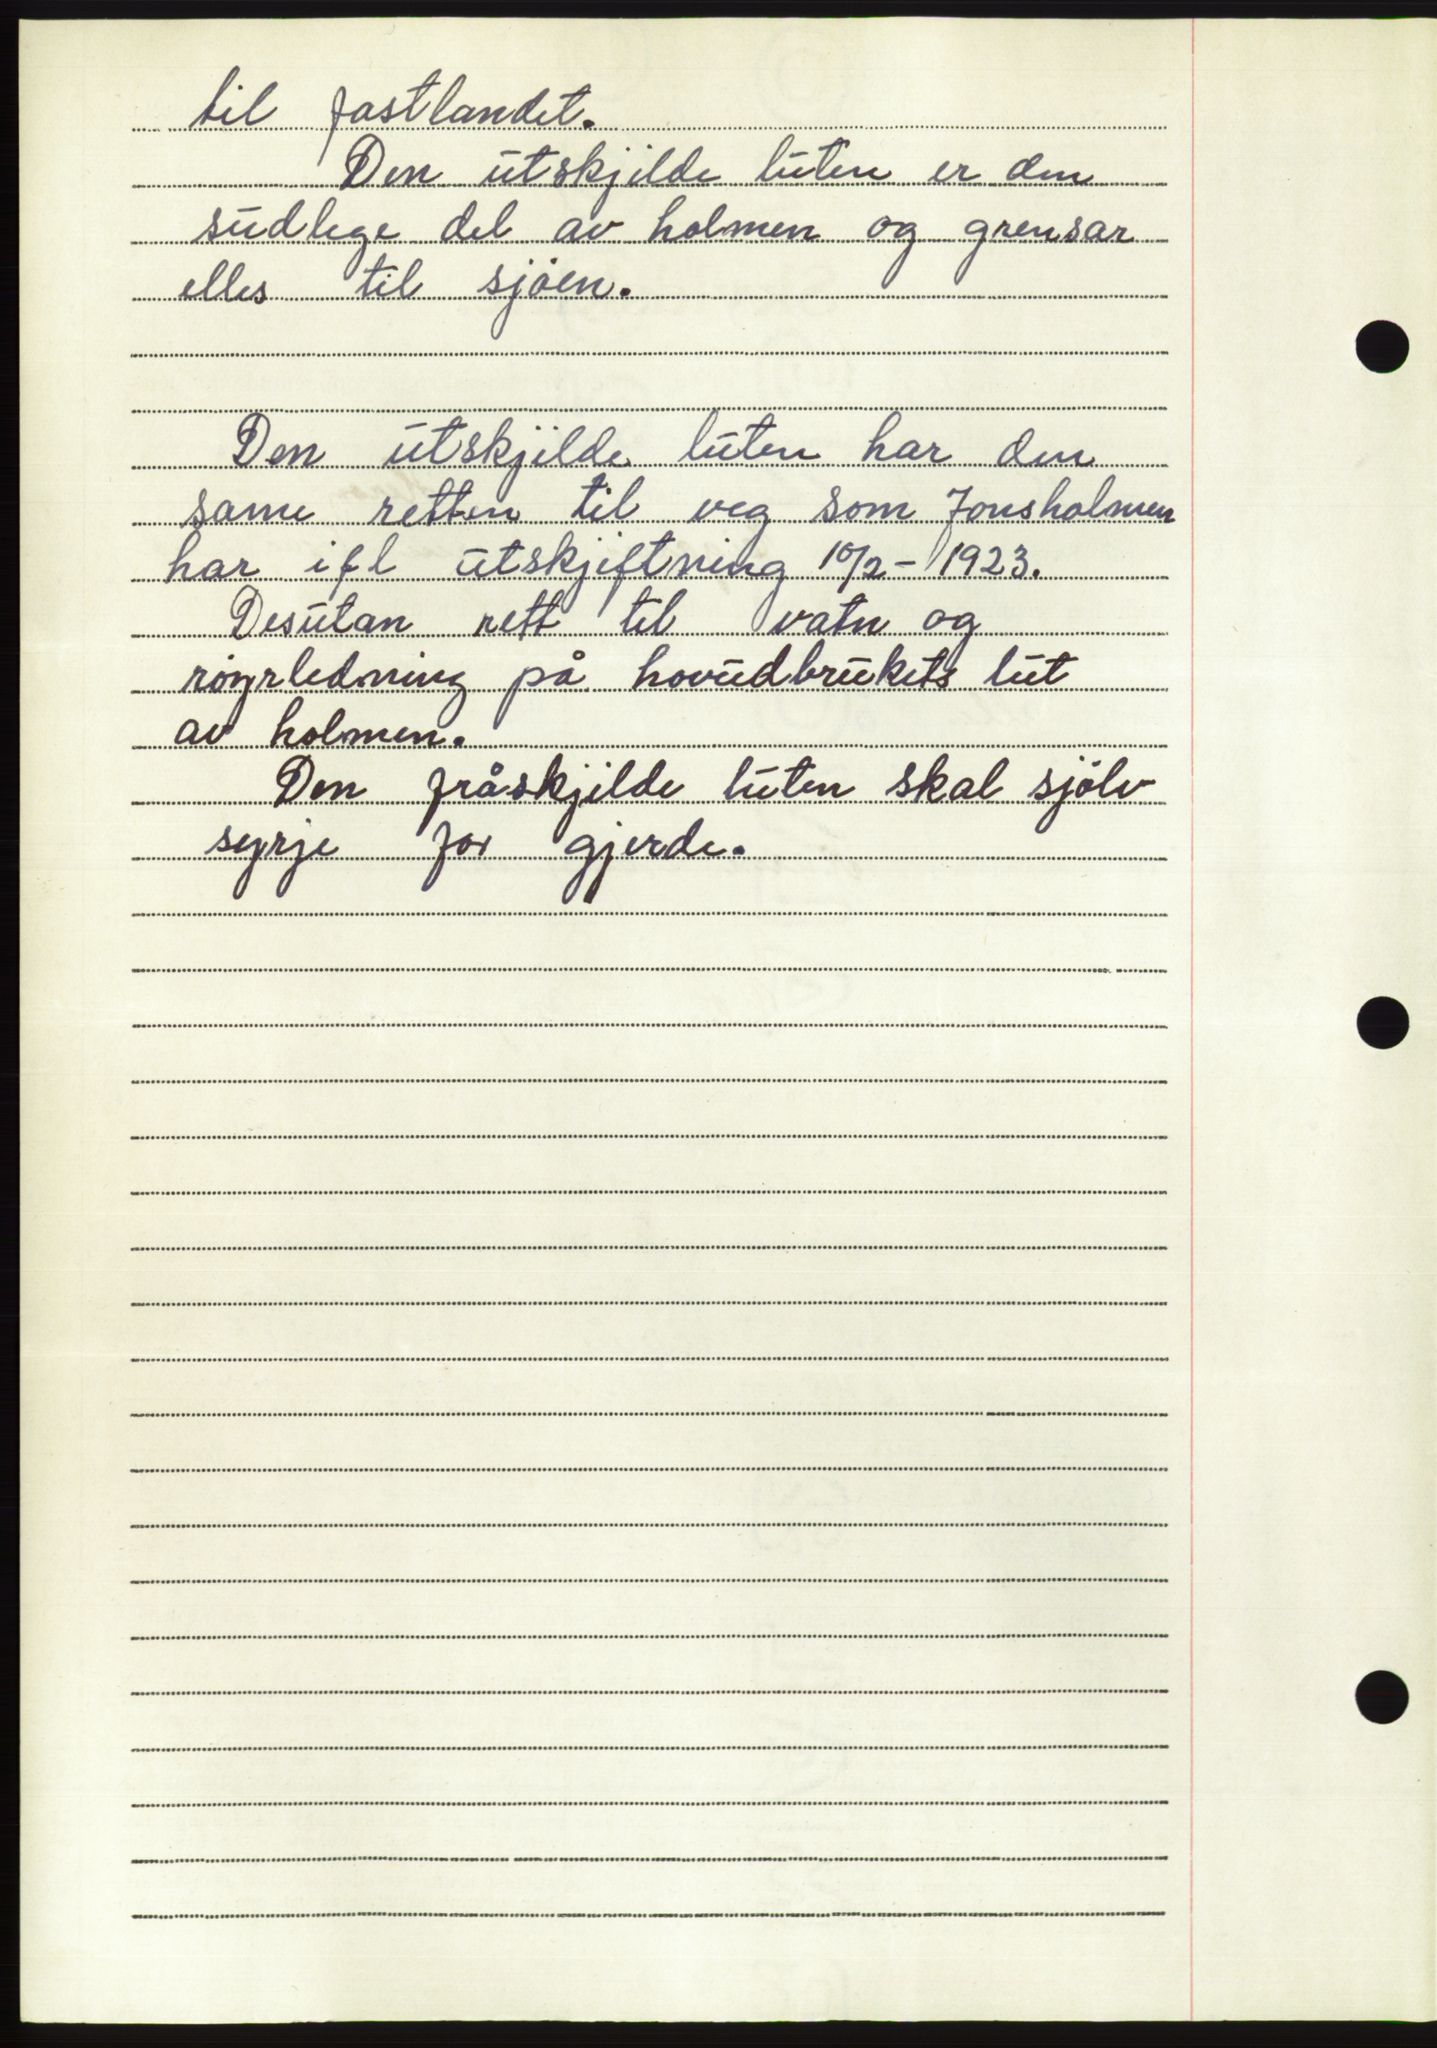 til fastlandet.
Den utskjilde luten er den
sudlege del av holmen og grensar
elles til sjöen.
Den utskjilde luten har den
same retten til veg som Jonsholmen
har ifl utskjiftning 10/2 - 1923.
Desutan rett til vatn og
röyrledning på hovudbrukets lut
av holmen.
Den fråskjilde luten skal sjölv
syrje for gjerde.